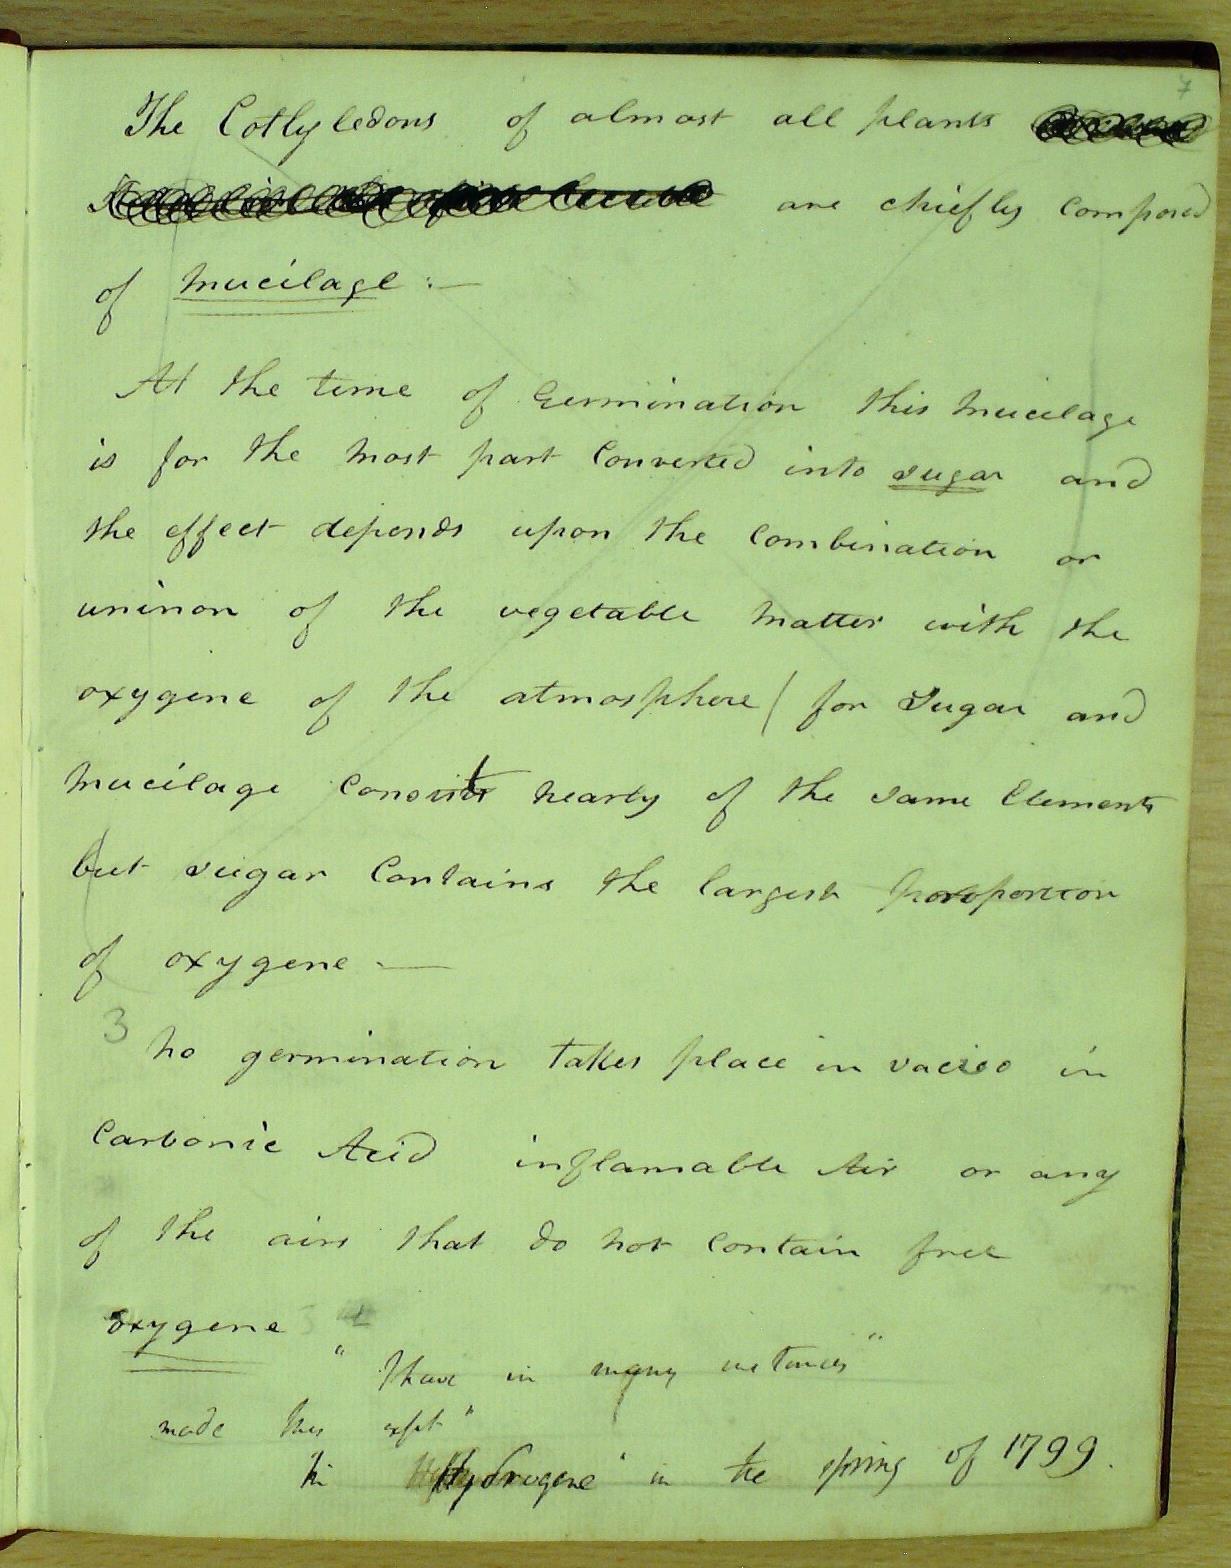 7
The Cotlyledons of almost all plants
are chiefly composed
of mucilage :—
At the time of Germination this mucilage
is for the most part Converted into sugar and
the effect depends upon the Combination or
uninon of the vegetable matter with the
oxygene of the atmosphere / for Sugar and
mucilage Consist nearly of the same Elements
but sugar Contains the largest proportion
of oxygene —
3 No germination takes place in vacuo in
Carbonic Acid inflamable Air or any
of the airs that do not contain free
oxygene
" I have in many instances "
made this expt "
"in Hydrogene " in the spring of 1799.